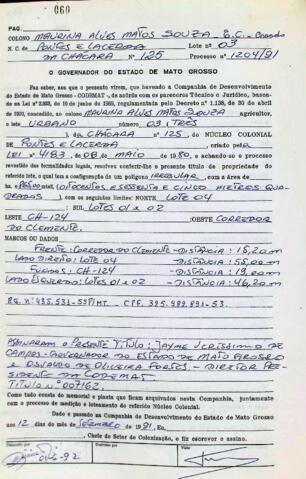 060
PAG.
COLONO MAURINA ALVES MATOS SOUZA, E.C. Casado
N.C. de PONTES E LACERDA Lote nº 03
da CHÁCARA Nº 125 Processo 1204/91
O GOVERNADOR DO ESTADO DE MATO GROSSO
Faz saber, aos que o presente virem, que havendo a Companhia de Desenvolvimento
do Estado de Mato Grosso - CODEMAT -, de acôrdo com os pareceres Técnico e Jurídico, basea-
do no Lei nº 2.293, de 10 de junho de 1965, regulamentada pelo Decreto nº 1.138, de 30 de abril
de 1970, concedido, ao colono MAURINA ALVES MATOS SOUZA agricultor,
o lote URBANO nº 03 (TRÊS)
da CHÁCARA nº 125, do NÚCLEO COLONIAL
de PONTES E LACERDA, criado pela
Lei 4183, de 08 de MAIO de 1980, e achando-se o processo
revestido das formalidades legais, resolve conferir-lhe o presente título de propriedade do
referido lote, o qual tem a configuração de um polígono IRREGULAR, com a área
de (OITOCENTOS E SESSENTA E CINCO METROS QUA-
DRADOS), com os seguintes limites: NORTE LOTE 04
SUL LOTES 01 e 02
LESTE CH-124 OESTE CORREDOR
DO CLEMENTE.
MARCOS OU DADOS
FRENTE: CORREDOR DO CLEMENTE - DISTÂNCIA: 15,20 m
LADO DIREITO: LOTE 04 - DISTÂNCIA: 55,00 m
FUNDOS: CH-124 - DISTÂNCIA: 19,00 m
LADO ESQUERDO: LOTES 01 e 02 - DISTÂNCIA: 46,20 m
RG. nº 435.531-SSP/MT. - CPF. 325.489.891-53.
ASSINARAM O PRESENTE TÍTULO: JAYME VERÍSSIMO DE
CAMPOS - GOVERNADOR DO ESTADO DE MATO GROSSO
e OSVALDO DE OLIVEIRA FORTES - DIRETOR PRE-
SIDENTE DA CODEMAT.
TÍTULO Nº 007162.
Como tudo consta do memorial e planta que ficam arquivados nesta Companhia, juntamente
com o processo de medição e loteamento do referido Núcleo Colonial.
Dado e passado na Companhia de Desenvolvimento do Estado de Mato Grosso
aos 12 dias do mês de SETEMBRO de 1991, Eu,
Chefe do Setor de Colonização, o fiz escrever e assino.